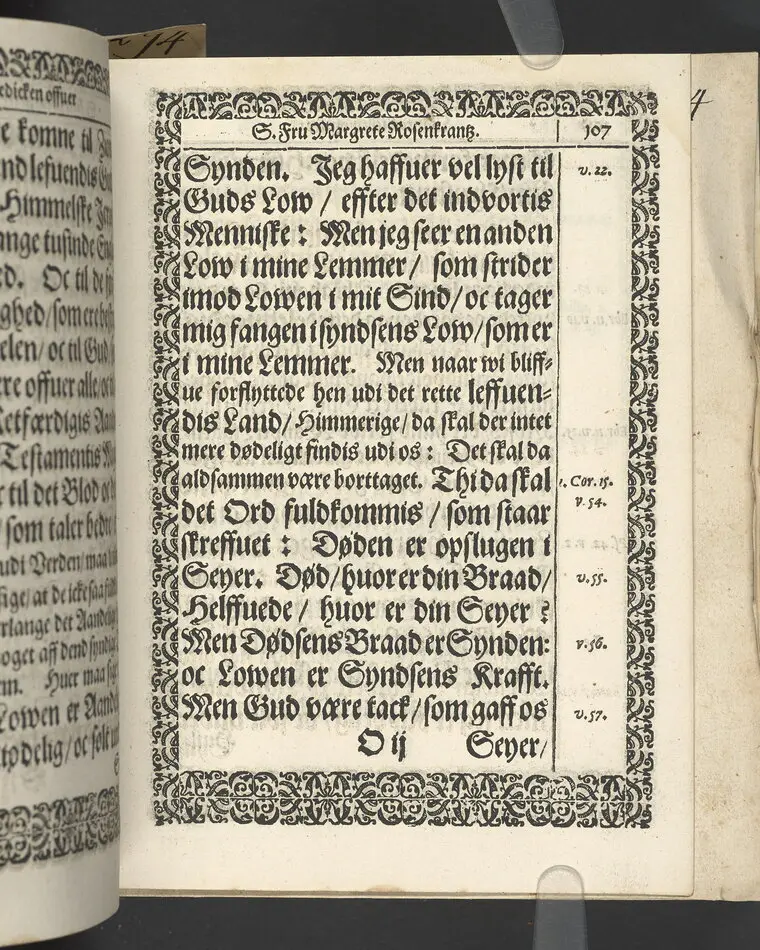 n 74
edicken offuer
e komne til
nd lefuendis
Himmelske
ange tusinde
ed. Oc til de
ghed/som ere
elen/ oc til Gud
re offuer alle/
Retfærdigis
Testamentis
til det Blod
som taler bedre
udi Verden/
sige/ at de icke saa
erlange det
oget aff dend syndige
Huer maa
Lowen er
/oc
S. Fru Margrete Rosenkrantz. 107
Synden. Jeg haffuer vel lyst til v. 22.
Guds Low / effter det indvortis
Menniske : Men jeg seer en anden
Low i mine Lemmer/ som strider
imod Lowen i mit Sind/ oc tager
mig fangen i syndsens Low/som er
i mine Lemmer. Men naar wi bliff-
ue forflyttede hen udi det rette leffuen-
dis Land/ Himmerige/ da skal der intet
mere dødeligt findis udi os : Det skal da
aldsammen være borttaget. Thi da skal 1. Cor. 15.
det Ord fuldkommis / som staar v. 54.
skreffuet : Døden er opslugen i
Seyer. Død/huor er din Braad/ v. 55.
Helffuede / huor er din Seyer ?
Men Dødsens Braad er Synden: v. 56.
oc Lowen er Syndsens Krafft.
Men Gud være tack/som gaff os v. 57.
O ij Seyer/
4